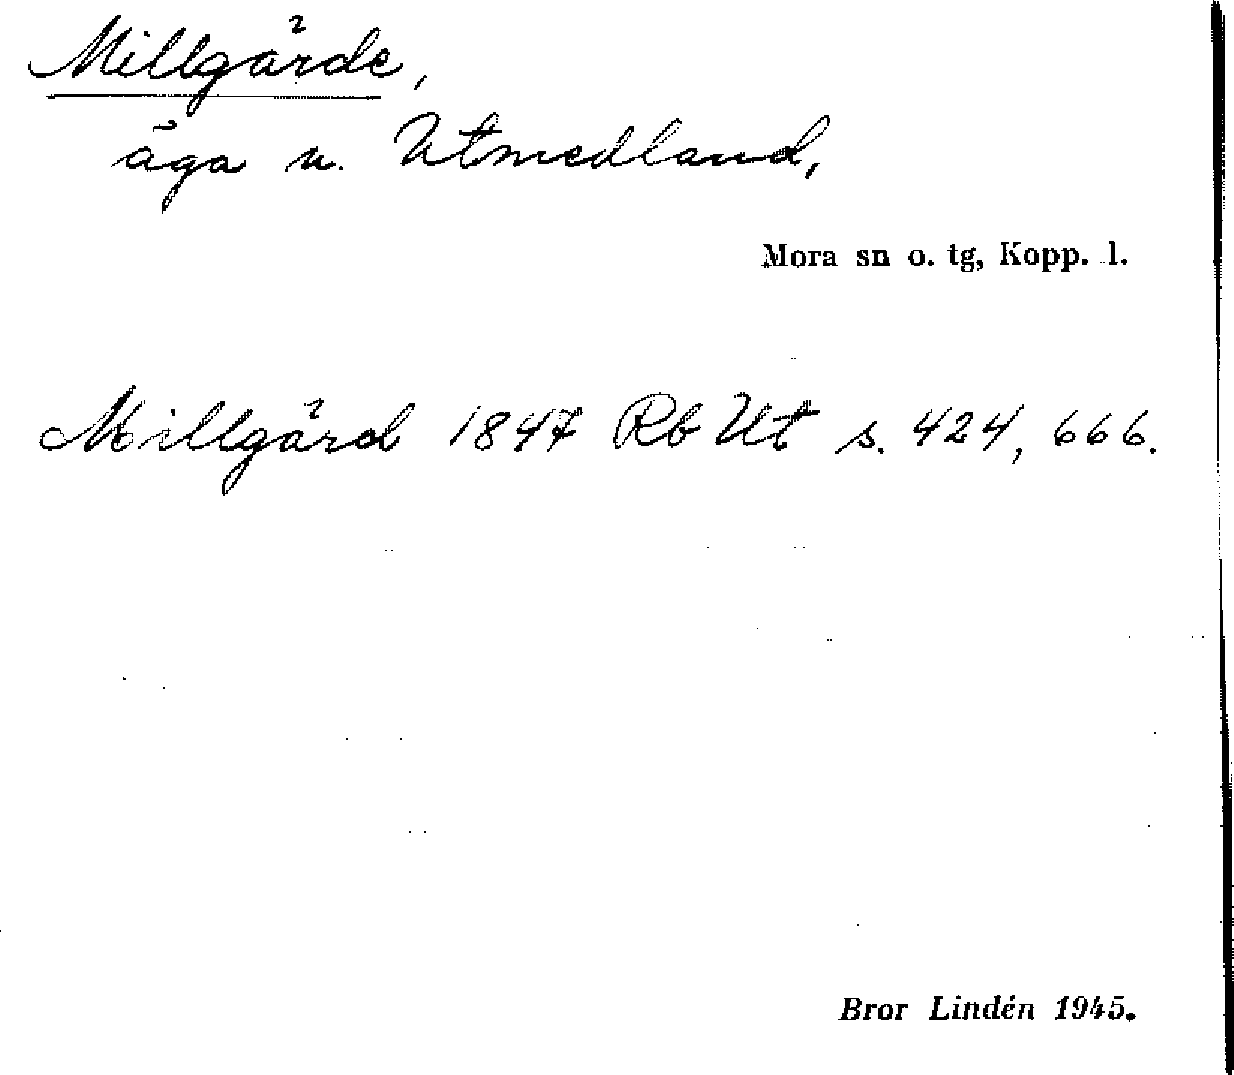 Millgärde,
äga u. Utmedland,
Mora sn o. tg, Kopp. l.
Millgärd 1847 Rb Ut s. 424, 666.
Bror Lindén 1945.